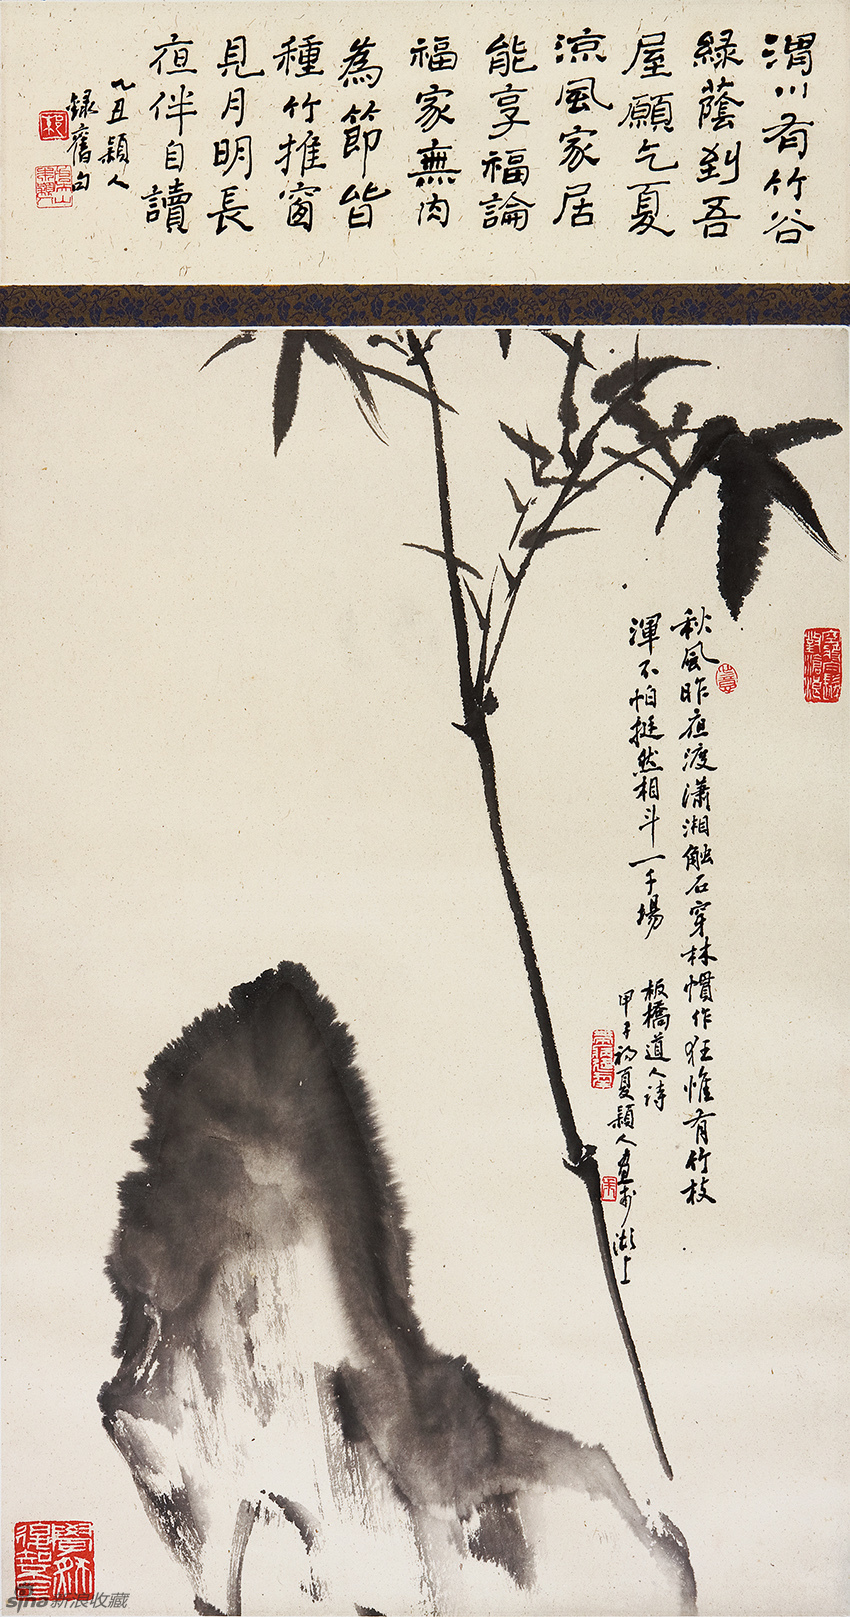 渭川有竹谷
綠蔭到吾
屋願乞夏
涼風家居
能享福論
福家無肉
為節皆
種竹推窗
見月明長
夜伴自讀
乙丑穎人
錄舊句
秋風昨夜渡瀟湘觸石穿林慣作狂惟有竹枝
渾不怕挺然相斗一千場
板橋道人詩
甲子初夏穎人畫於湖上
sina新浪收藏